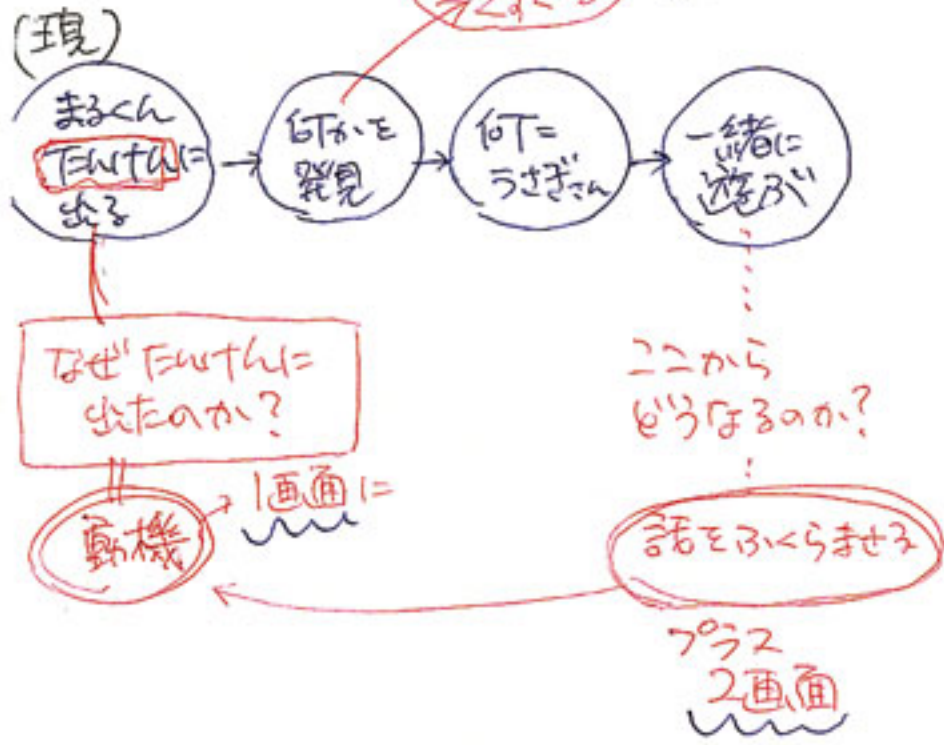 (現)
まるくん
たんけんに
出る
何かを
発見
何に
うさぎさん
一緒に
遊ぶ
なぜたんけんに
出たのか?
動機
1画面に
ここから
どうなるのか?
話をふくらませる
プラス
2画面